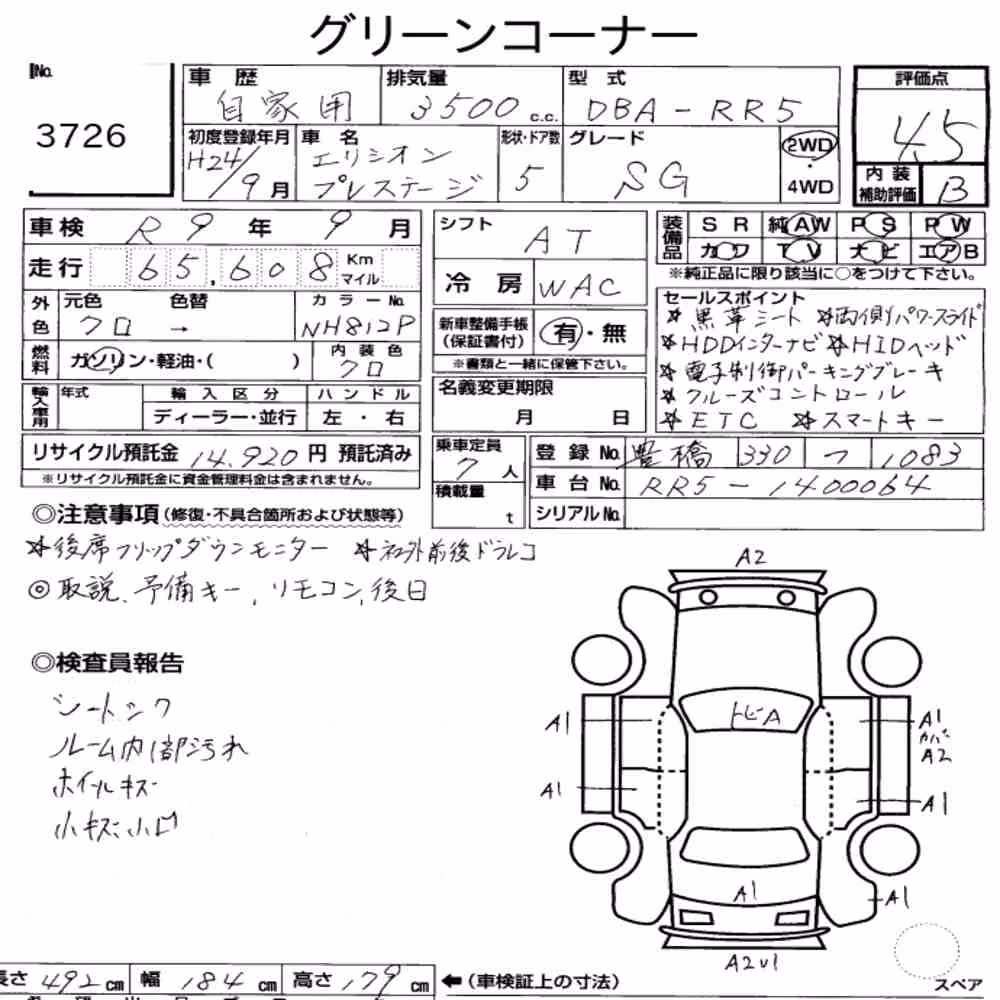 グリーンコーナー
No. 3726
車歴 自家用
排気量 3500 c.c.
型式 DBA-RR5
評価点 4.5
初度登録年月 H24/9月
車名 エリシオン プレステージ
形状・ドア数 5
グレード SG
2WD・4WD
内装補助評価 B
車検 R9年9月
走行 65,608 Km マイル
外色 元色 クロ → 色替
カラーNo. NH812P
燃料 ガソリン・軽油・( )
内装色 クロ
輸入車用 年式
輸入区分 ディーラー・並行
ハンドル 左・右
リサイクル預託金 14,920円 預託済み
※リサイクル預託金に資金管理料金は含まれません。
シフト AT
冷房 WAC
新車整備手帳(保証書付) 有・無
※書類と一緒に保管下さい。
名義変更期限
月 日
乗車定員 7人
積載量 t
装備品 SR 純AW PS PW
カワ TV ナビ エアB
※純正品に限り該当に○をつけて下さい。
セールスポイント
☆黒革シート ☆両側パワースライド
☆HDDインターナビ ☆HIDヘッド
☆電子制御パーキングブレーキ
☆クルーズコントロール
☆ETC ☆スマートキー
登録No. 豊橋 330 つ 1083
車台No. RR5-1400064
シリアルNo.
◎注意事項(修復・不具合箇所および状態等)
☆後席フリップダウンモニター ☆社外前後ドラレコ
◎取説、予備キー、リモコン、後日
◎検査員報告
シートシワ
ルーム内1部汚れ
ホイールキズ
小キズ、小凹
A2
トビA
A1
A1
カバー
A2
A1
A1
A1
A1
A2U1
スペア
長さ 492cm 幅 184cm 高さ 179cm ←(車検証上の寸法)